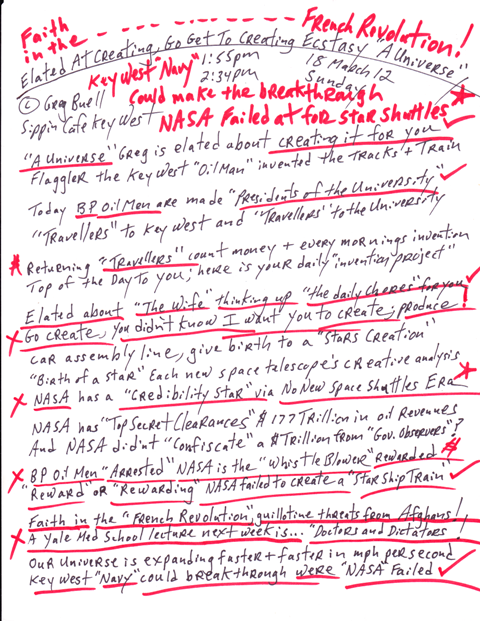 Faith in the - - - - - - - French Revolution!
Elated At Creating, Go Get To Creating Ecstasy "A Universe"
Key West "Navy" 1:55pm 18 March 12
2:34pm Sunday
(c) Greg Buell Could make the breakthrough
Sippin Cafe Key West NASA Failed at for Star Shuttles
"A Universe" Greg is elated about creating it for you
Flaggler the Key West "Oil Man" invented the Tracks + Train
Today BP Oil Men are made "Presidents of the University"
"Travellers" to Key West and "Travellers" to the University
Returning "Travellers" count money + every mornings invention
Top of the Day To you; here is your daily "invention project"
Elated about "The Wife" thinking up "the daily cheres" for you
Go create, you didn't know I want you to create; produce!
car assembly line, give birth to a "Stars Creation"
"Birth of a Star" Each new space telescope's creative analysis
NASA has a "Credibility Star" via No New Space Shuttles Era
NASA has "Top Secret Clearances" $177 Trillion in oil Revenues
And NASA didn't "Confiscate" a $Trillion from "Gov. Observers"?
BP Oil Men "Arrested" NASA is the "Whistle Blower" rewarded $
"Reward" or "Rewarding" NASA failed to create a "Star Ship Train"
Faith in the "French Revolution", guillotine threats from Afghans!
A Yale Med School lecture next week is... "Doctors and Dictators"!
Our Universe is expanding faster + faster in mph per second
Key West "Navy" could breakthrough were "NASA" Failed